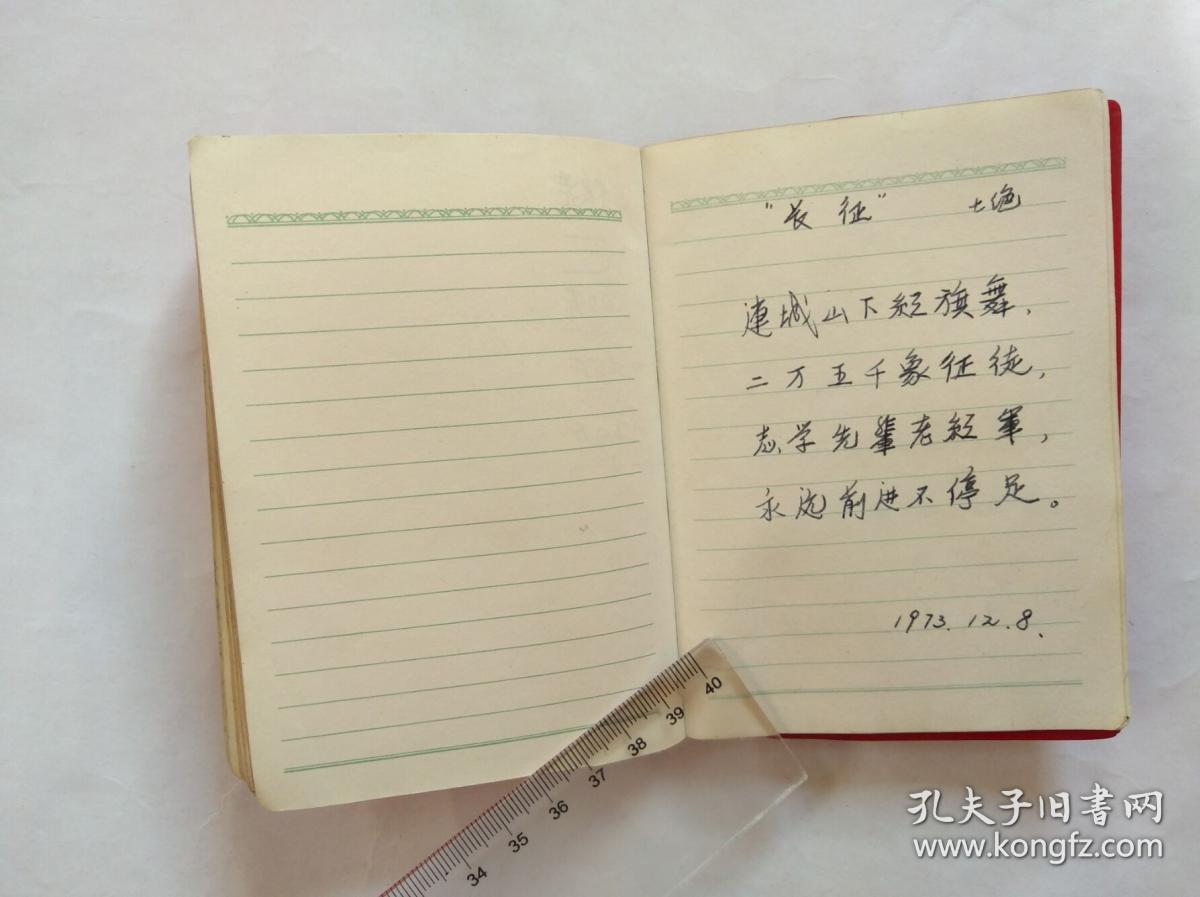 "长征" 七绝
連城山下紅旗舞，
二万五千象征徒，
志学先輩老紅軍，
永远前进不停足。
1973.12.8、
40
39
38
37
36
35
34
孔夫子旧書网
www.kongfz.com